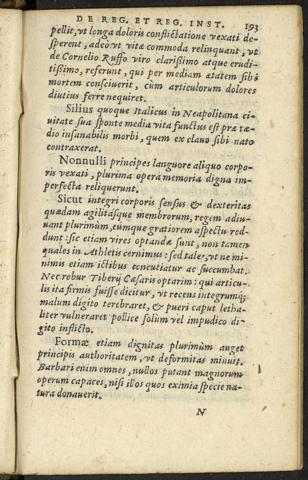 DE REG. ET REG. INST. 193
pellit, vt longa doloris conflictatione vexati de-
sperent, adeò vt vitæ commoda relinquant, vt
de Cornelio Ruffo viro clarißimo atque erudi-
tißimo, referunt, qui per mediam ætatem sibi
mortem consciuerit, cum articulorum dolores
diutius ferre nequiret.
Silius quoque Italicus in Neapolitana ci-
uitate sua sponte media vita functus est præ tæ-
dio insanabilis morbi, quem ex clauo sibi nato
contraxerat.
Nonnulli principes languore aliquo corpo-
ris vexati, plurima opera memoria digna im-
perfecta reliquerunt.
Sicut integri corporis sensus & dexteritas
quædam agilitásque membrorum, regem adiu-
uant plurimùm, eumque gratiorem aspectu red-
dunt: sic etiam vires optandæ sunt, non tamen
quales in Athletis cernimus: sed tales, vt ne mi-
nimis etiam ictibus concutiatur ac succumbat.
Nec robur Tiberij Cæsaris optarim: qui articu-
lis ita firmis fuisse dicitur, vt recens integrumq;
malum digito terebraret, & pueri caput letha-
liter vulneraret pollice solùm vel impudico di-
gito inflicto.
Formæ etiam dignitas plurimùm auget
principis authoritatem, vt deformitas minuit.
Barbari enim omnes, nullos putant magnorum
operum capaces, nisi illos quos eximia specie na-
tura donauerit.
N